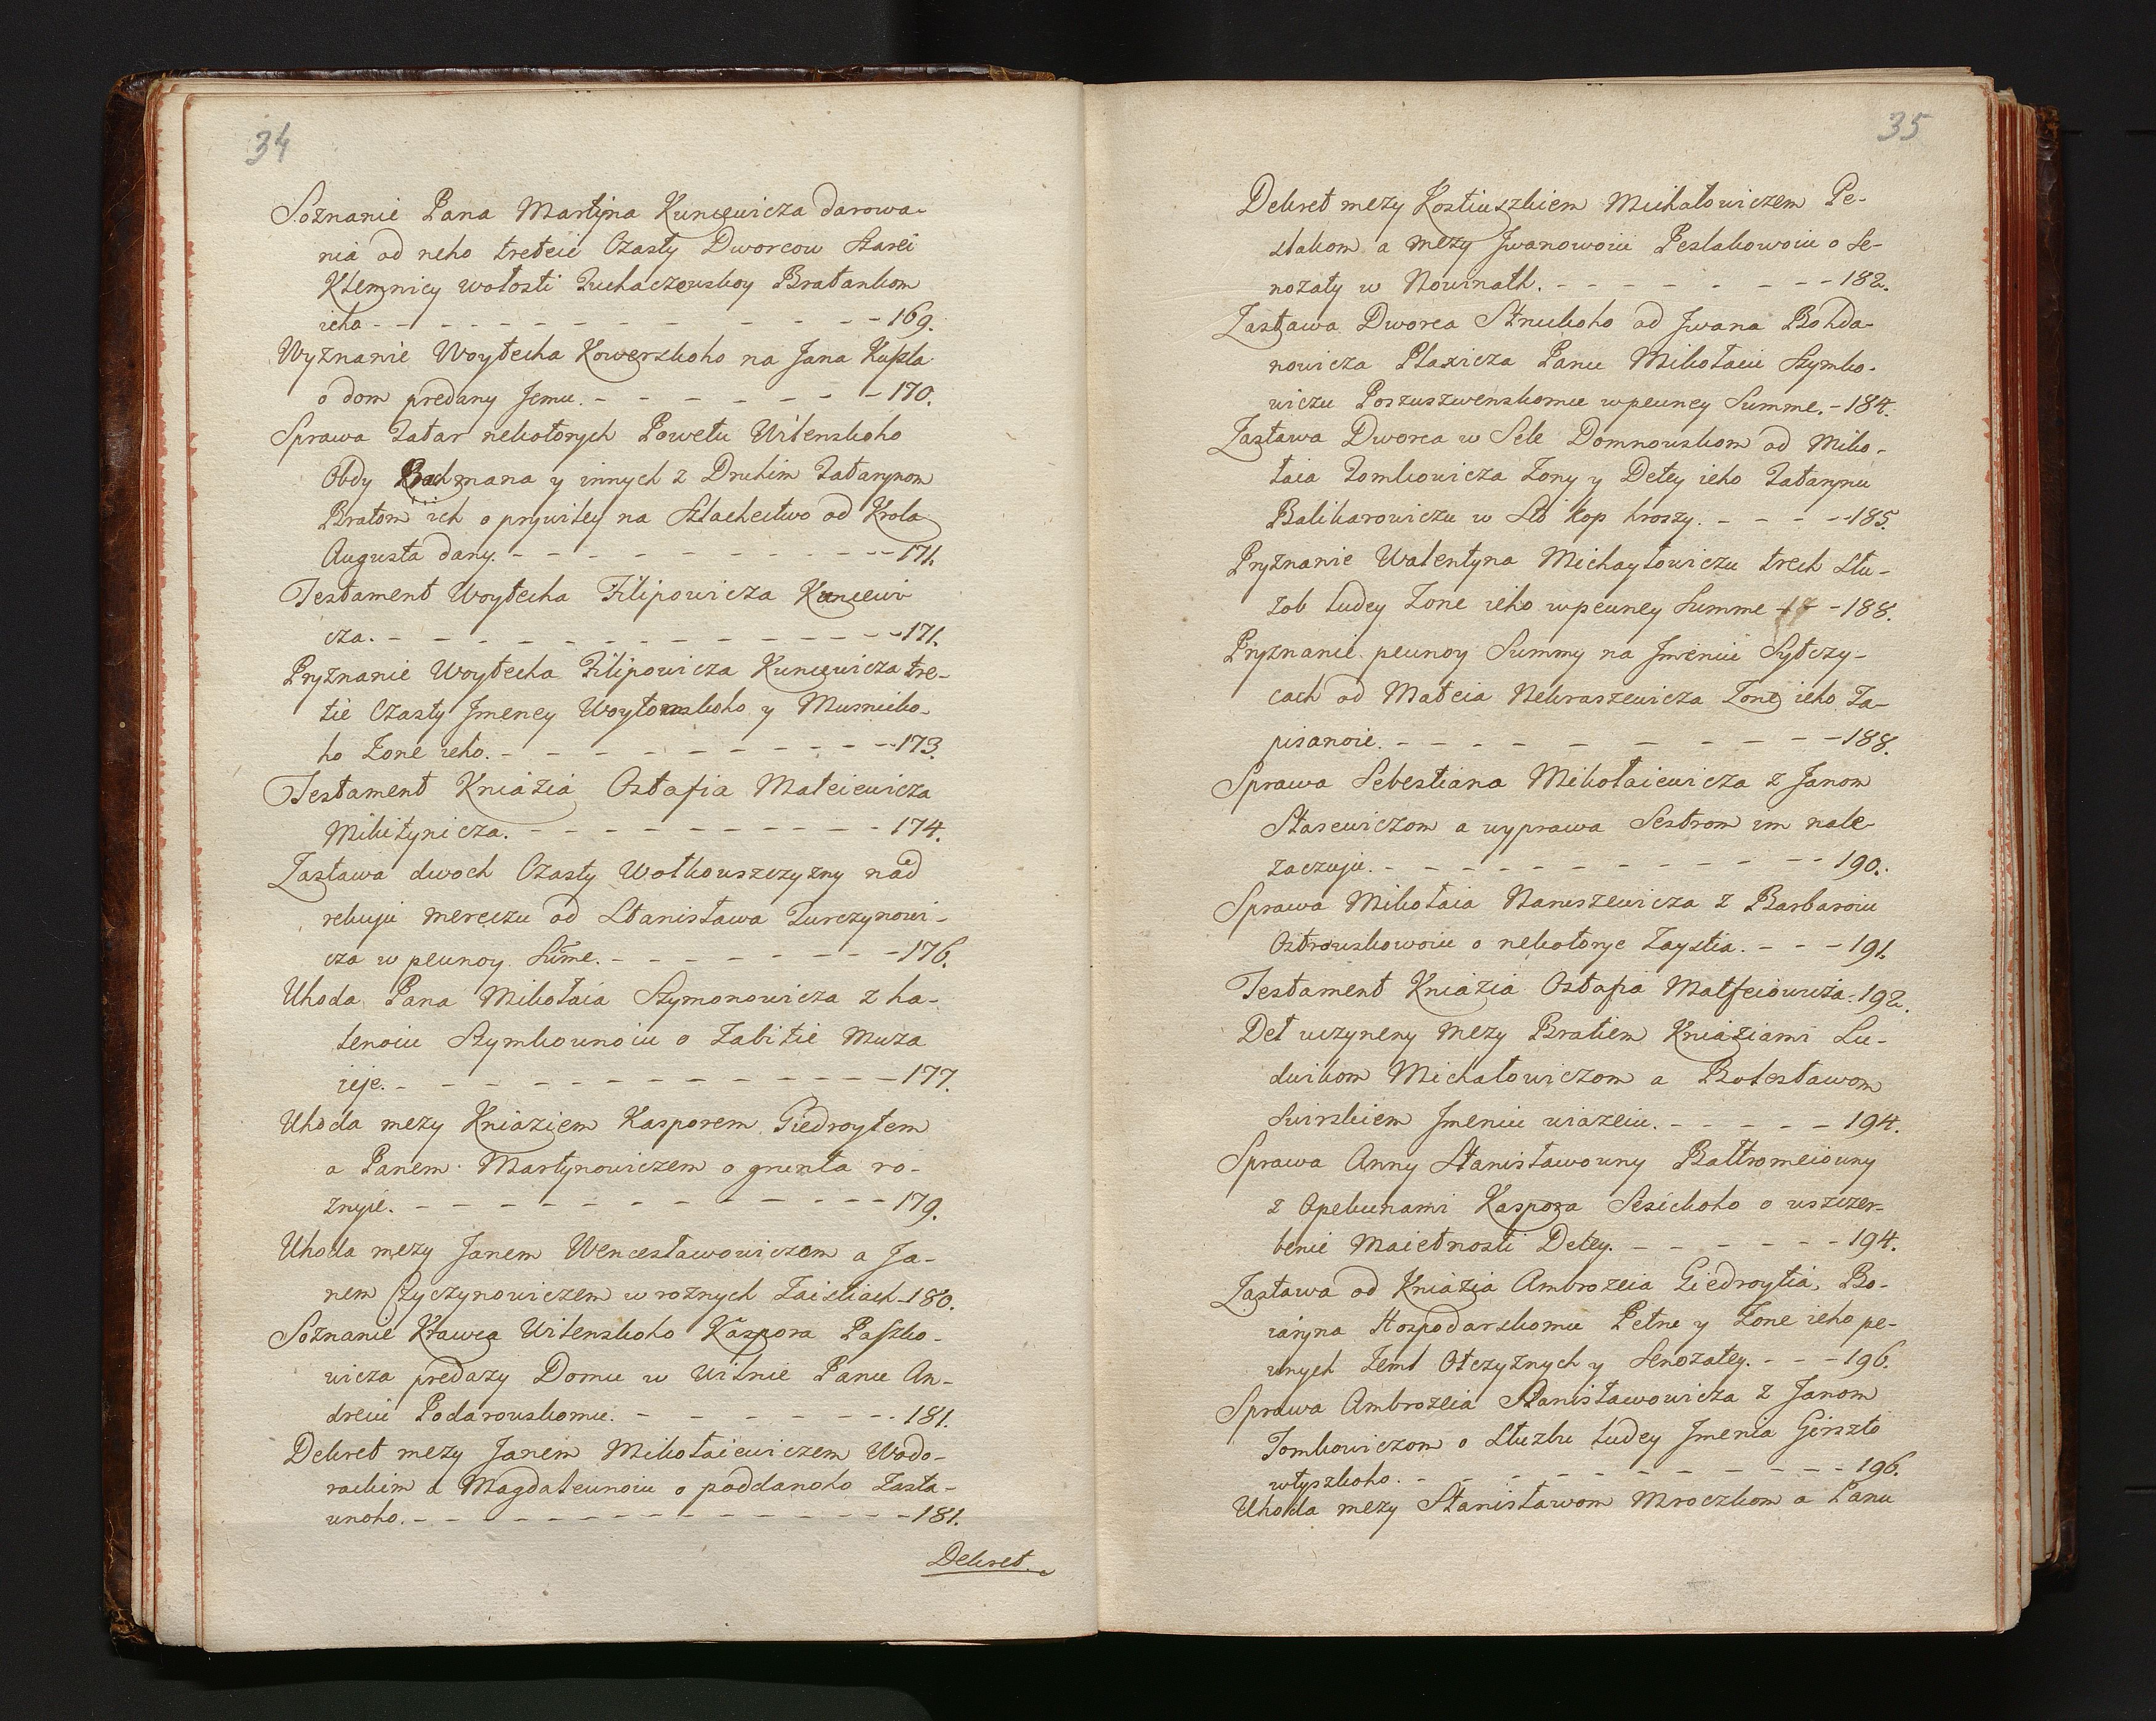 34
Soznanie Pana Martyna Kuncewicza darowa-
nia od neho tretcie Czasty Dworcow Starei
Klemnicy wołosti Tuchaczewskoy Bratankom
ieho - - - - 169.
Wyznanie Woytecha Kowerskoho na Jana Kuszla
o dom predany Jemu. - - - - 170.
Sprawa Tatar nekotorych Powetu Wilenskoho
Obdy Rachmana y innych z Druhim Tatarynom
Bratom ich o prywiley na Szlachectwo od Krola
Augusta dany. - - - - 171.
Testament Woytecha Filipowicza Kuncewi
cza. - - - - 171.
Pryznanie Woytecha Filipowicza Kuncewicza tre-
tie Czasty Jmeney Woytowskoho y Musnicko-
ho Zone ieho. - - - - 173.
Testament Kniazia Ostafia Mateiewicza
Mikitynicza. - - - - 174.
Zastawa dwoch Czasty Wołkowszczyzny nad
rekuju mereczu od Stanisława Turczynowi-
cza w pewnoy Sume. - - - - 176.
Uhoda Pana Mikołaia Szymonowicza z ha-
lenoiu Szymkownoiu o Zabitie Muza
ieje. - - - - 177.
Uhoda mezy Kniaziem Kasporem Giedroytem
a Panem Martynowiczem o grunta ro-
znyie. - - - - 179.
Uhoda mezy Janem Wencesławowiczem a Ja-
nem Czyczynowiczem w roznych Zaisciach - 180.
Soznanie Krawca Wilenskoho Kaspora Paszko-
wicza predazy Domu w Wilnie Panu An-
dreiu Podarowskomu. - - - - 181.
Dekret mezy Janem Mikołaiewiczem Wodo-
rackim a Magdalewnoiu o poddanoho Zasta-
wnoho. - - - - 181.
Dekret.
35
Dekret mezy Kostiuszkiem Michałowiczem Pe-
slakom a mezy Jwanowoiu Peslakowoiu o Se-
nozaty w Nowinath. - - - - 182.
Zastawa Dworca Struckoho od Jwana Bohda-
nowicza Plaxicza Panu Mikołaiu Szymko-
wiczu Poszuszwenskomu w pewney Summe. - 184.
Zastawa Dworca w Sele Domnowskom od Miko-
łaia Tomkowicza Zony y Detey ieho Tatarynu
Balikarowiczu w Sto kop hroszy. - - - - 185.
Pryznanie Walentyna Michayłowiczu trech Słu-
zob Ludey Zone ieho w pewney Summe - - 188.
Pryznanie pewnoy Summy na Jmeniu Sytczy-
cach od Matcia Nekraszewicza Zone ieho Za-
pisanoie. - - - - 188.
Sprawa Sebestiana Mikołaiewicza z Janom
Stasewiczom a wyprawa Sestrom im nale
zaczuju. - - - - 190.
Sprawa Mikołaia Naruszewicza z Barbaroiu
Ostrowskowoiu o nekotorye Zaystia. - - - 191.
Testament Kniazia Ostafia Matfeiowicza. 192.
Deł uczyneny mezy Bratiem Kniaziami Lu-
dwikom Michałowiczom a Bolesławom
Swirskiem Jmeniu wiazeiu. - - - - 194.
Sprawa Anny Stanisławowny Bałtromeiowny
z Opekunami Kaspora Sesickoho o uszczer-
benie Maietnosti Detey. - - - - 194.
Zastawa od Kniazia Ambrozeia Giedroytia, Bo-
iaryna Hospodarskomu Petru y Zone ieho pe-
wnych Zeml Otczyznych y Senozatey. - - - 196.
Sprawa Ambrozeia Stanisławowicza z Janom
Tomkowiczom o Słuzbu Ludey Jmenia Girszto
wtyszkoho. - - - - 196.
Uhoda mezy Stanisławom Mroczkom a Panu